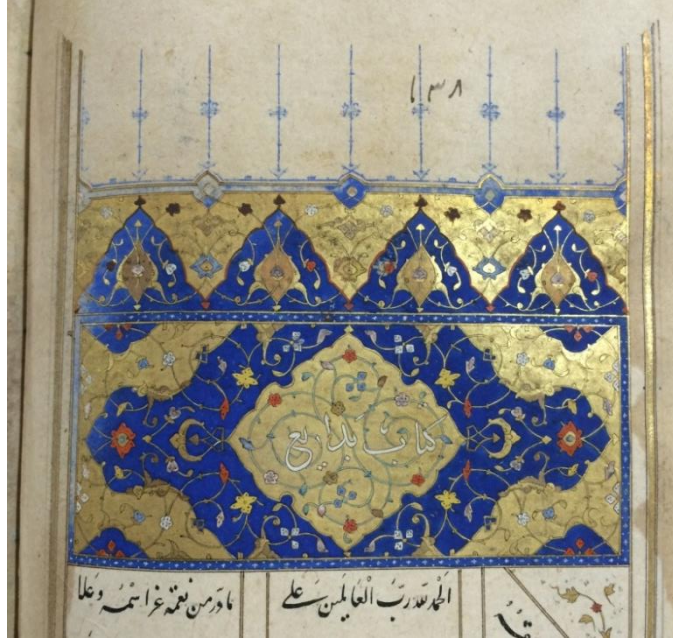 ۱۳۸
کتاب بدایع
الحمد لله رب العالمین علی
ما در من نعمة عز اسمه و علا